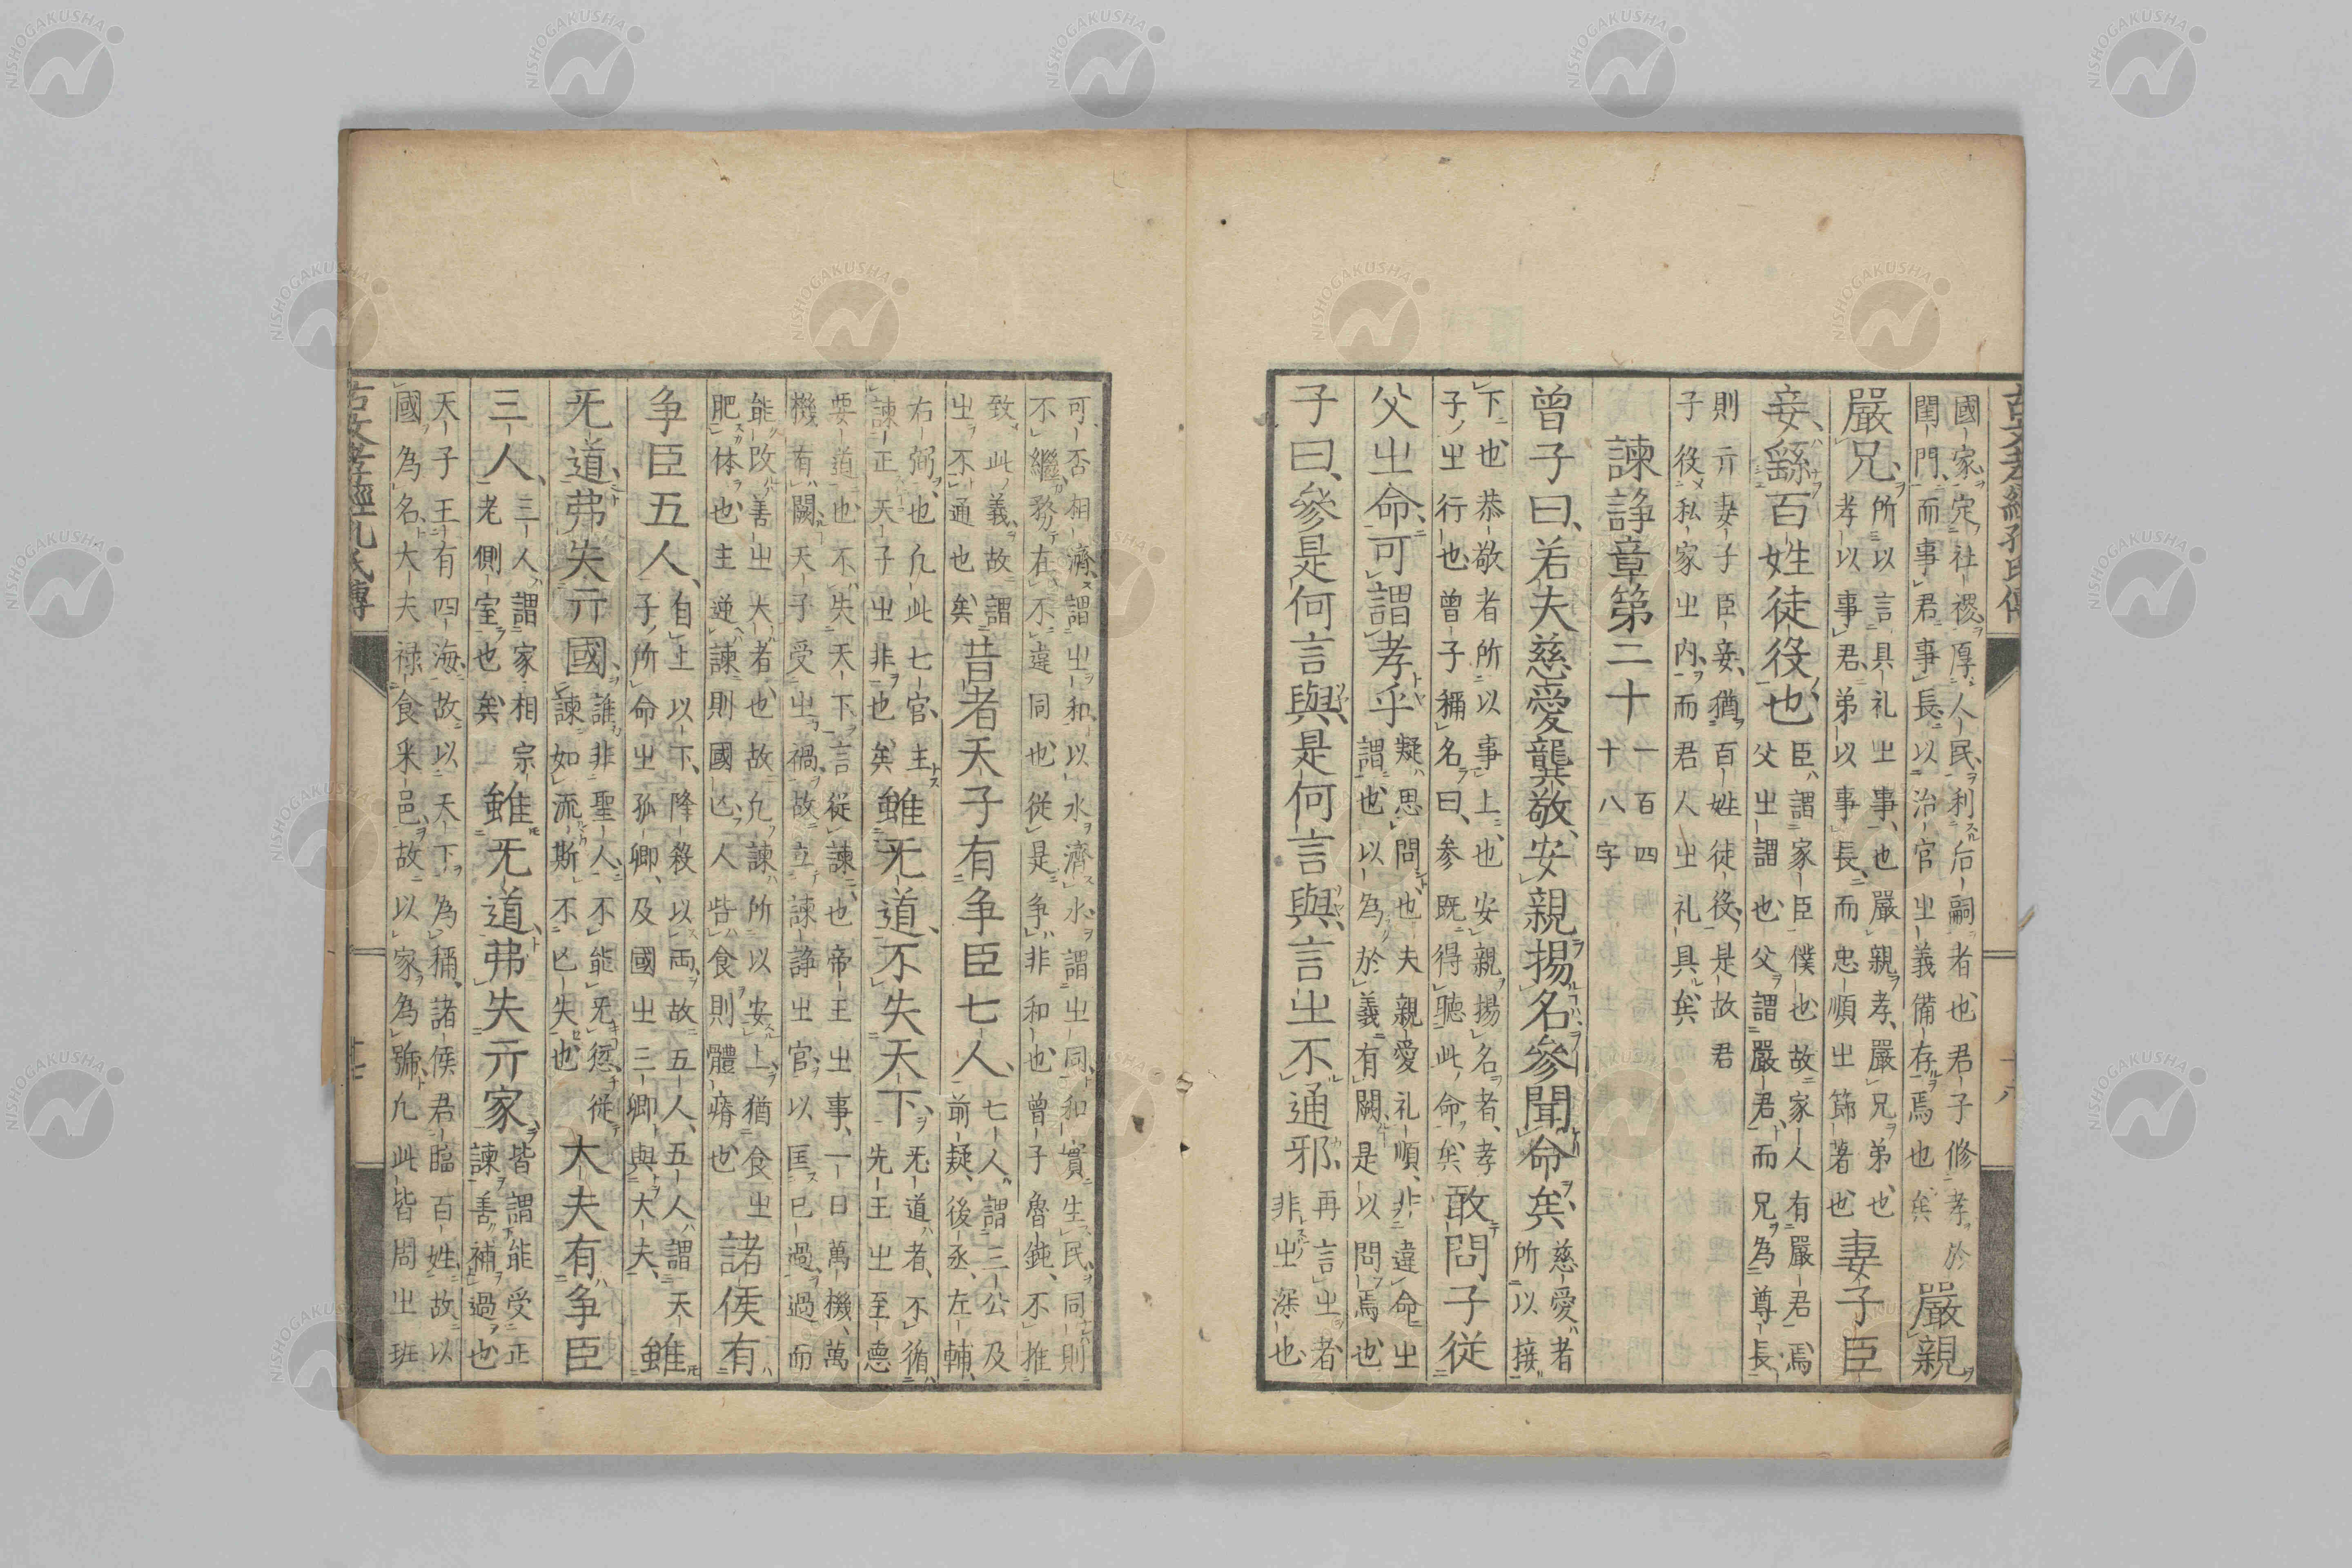 古文孝經孔氏傳
國家定社稷厚人民利后嗣者也君子修孝於
閨門而事君事長以治官㞢義備存焉也矣
嚴親
嚴兄
所以言具礼㞢事也嚴親孝嚴兄弟也
孝以事君弟以事長而忠順㞢節著也
妻子臣
妾繇百姓徒役也
臣謂家臣僕也故家人有嚴君焉
父㞢謂也父謂嚴君而兄為尊長
則亓妻子臣妾猶百姓徒役是故君
子役私家㞢内而君人㞢礼具矣
諫諍章第二十
一百四
十八字
曾子曰若夫慈愛龔敬安親揚名參聞命矣
慈愛者
所以接
下也恭敬者所以事上也安親揚名者孝
子㞢行也曾子稱名曰参既得聴此命矣
敢問子從
父㞢命可謂孝乎
疑思問也夫親愛礼順非違命㞢
謂也以為於義有闕是以問焉也
子曰參是何言與是何言與言㞢不通邪
再言㞢者
非㞢深也
可否相濟謂㞢和以水濟水謂㞢同和實生民同則
不繼務在不違同也從是争非和也曾子魯鈍不推
致此義故謂
㞢不通也矣
昔者天子有争臣七人
七人謂三公及
前疑後丞左輔
右弼也凢此七官主
諫正天子㞢非也矣
雖无道不失天下
无道者不循
先王㞢至悳
要道也不失天下言從諫也帝王㞢事一日萬機萬
機有闕天子受㞢禍故立諫諍㞢官以匡已過過而
能改善㞢大者也故凢諫所以安上猶食㞢
肥体也主逆諫則國亾人呰食則體瘠也
諸侯有
争臣五人
自上以下降殺以兩故五人五人謂天
子所命㞢孤卿及國㞢三卿與大夫
雖
无道弗失亓國
誰非聖人不能无愆從
諫如流斯不亾失也
大夫有争臣
三人
三人謂家相宗
老側室也矣
雖无道弗失亓家
皆謂能受正
諫善補過也
天子王有四海故以天下為稱諸侯君臨百姓故以
國為名大夫禄食采邑故以家為號凢此皆周㞢班
古文孝經孔氏傳